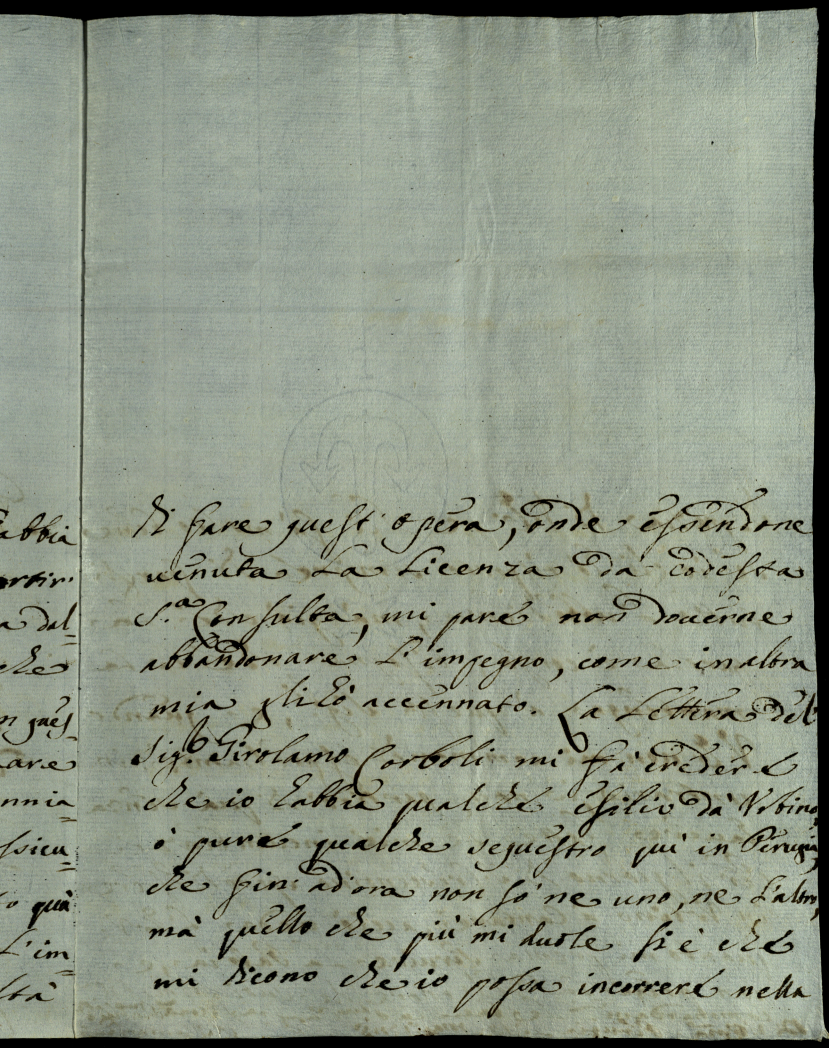 abbia
artir
a dal=
che
n ques=
are
nnia
ssicu=
o quà
L'im=
ltà
di fare quest'opera, onde essendone
uenuta La Licenza da codesta
S.a Consulta, mi pare non douerne
abbandonare L'impegno, come in altra
mia gli hò accennato. La Lettera del
Sig.r Girolamo Corboli mi fà creder e
che io habbia qualche esilio dà Vrbino,
ò pure qualche sequestro quì in Perugia,
che fin ad'ora non sò ne uno, ne L'altro,
mà quello che più mi duole si è che
mi dicono che io possa incorrere nella